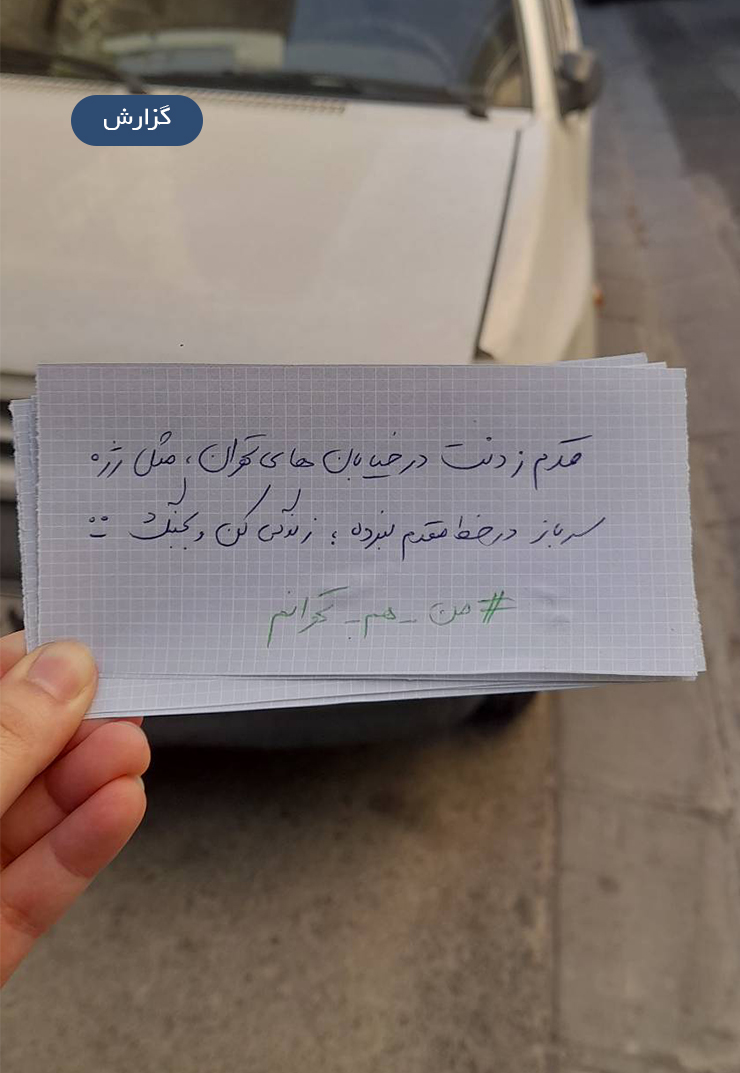 گزارش
قدم زدنت در خیابان های تهران، مثل رژه
سرباز در خط مقدم نبرده؛ زندگی کن و بجنگ :)
#من_هم_